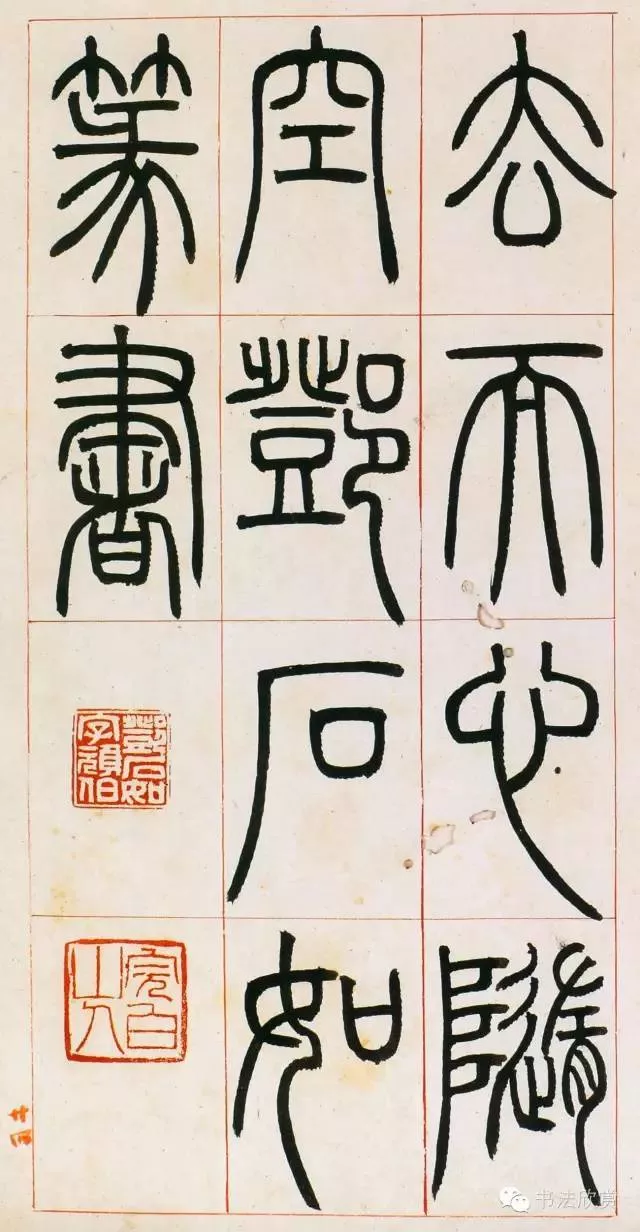 去而心隨
空鄧石如
篆書
鄧石如
字頑伯
完白
山人
廿四
书法欣赏